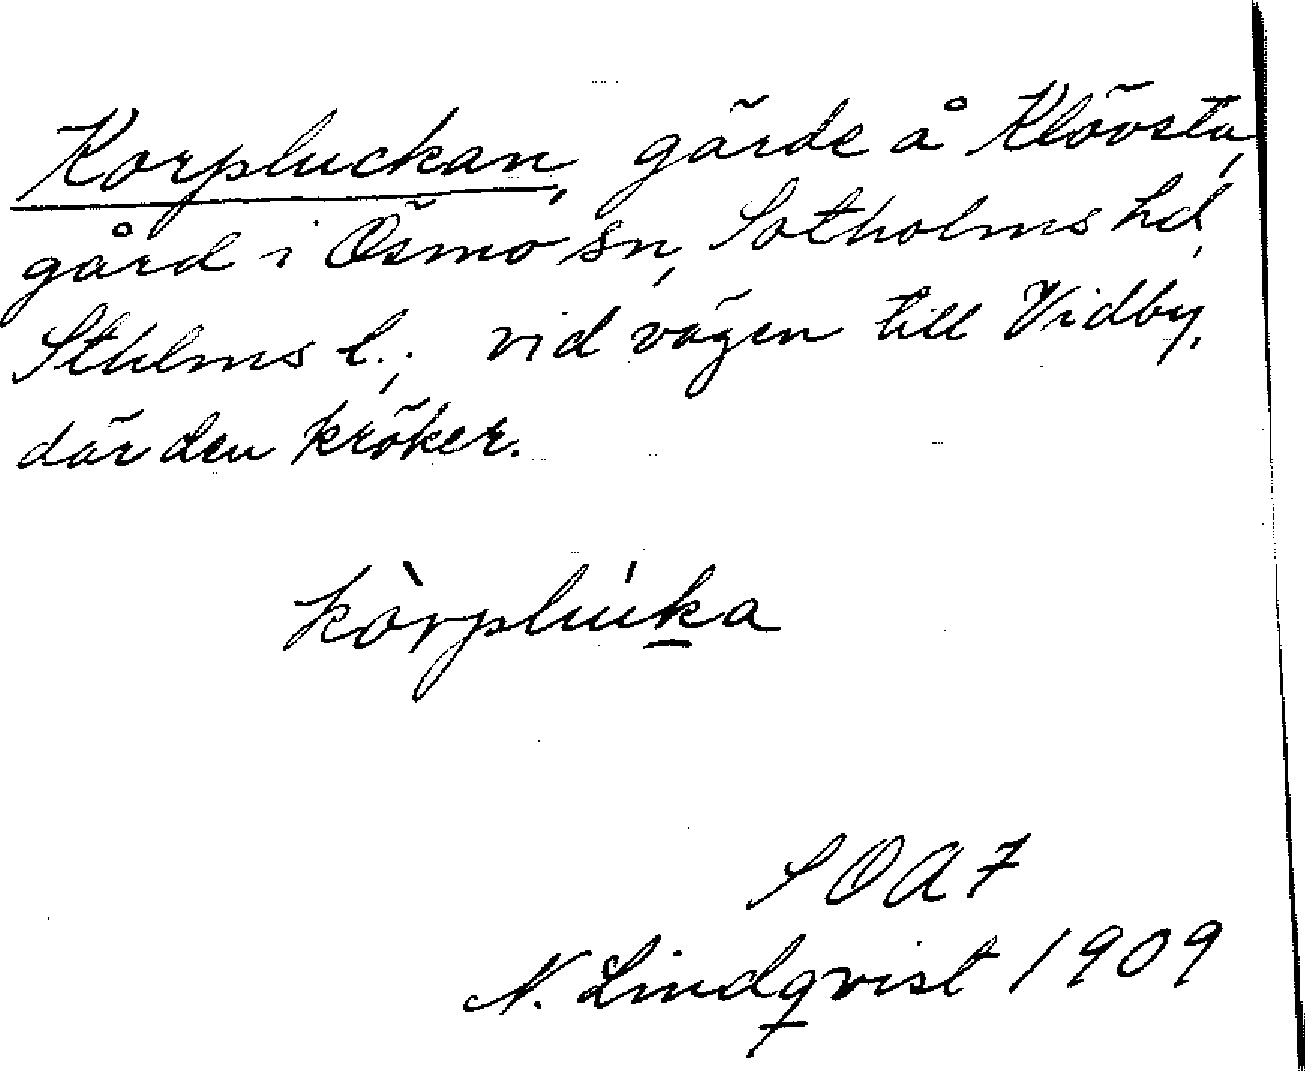 Korpluckan, gärde å Klövsta,
gård i Ösmo sn, Sotholms hd,
Sthlms l.; vid vägen till Vidby,
där den kröker.
kòrplúka
SOAF
N. Lindqvist 1909